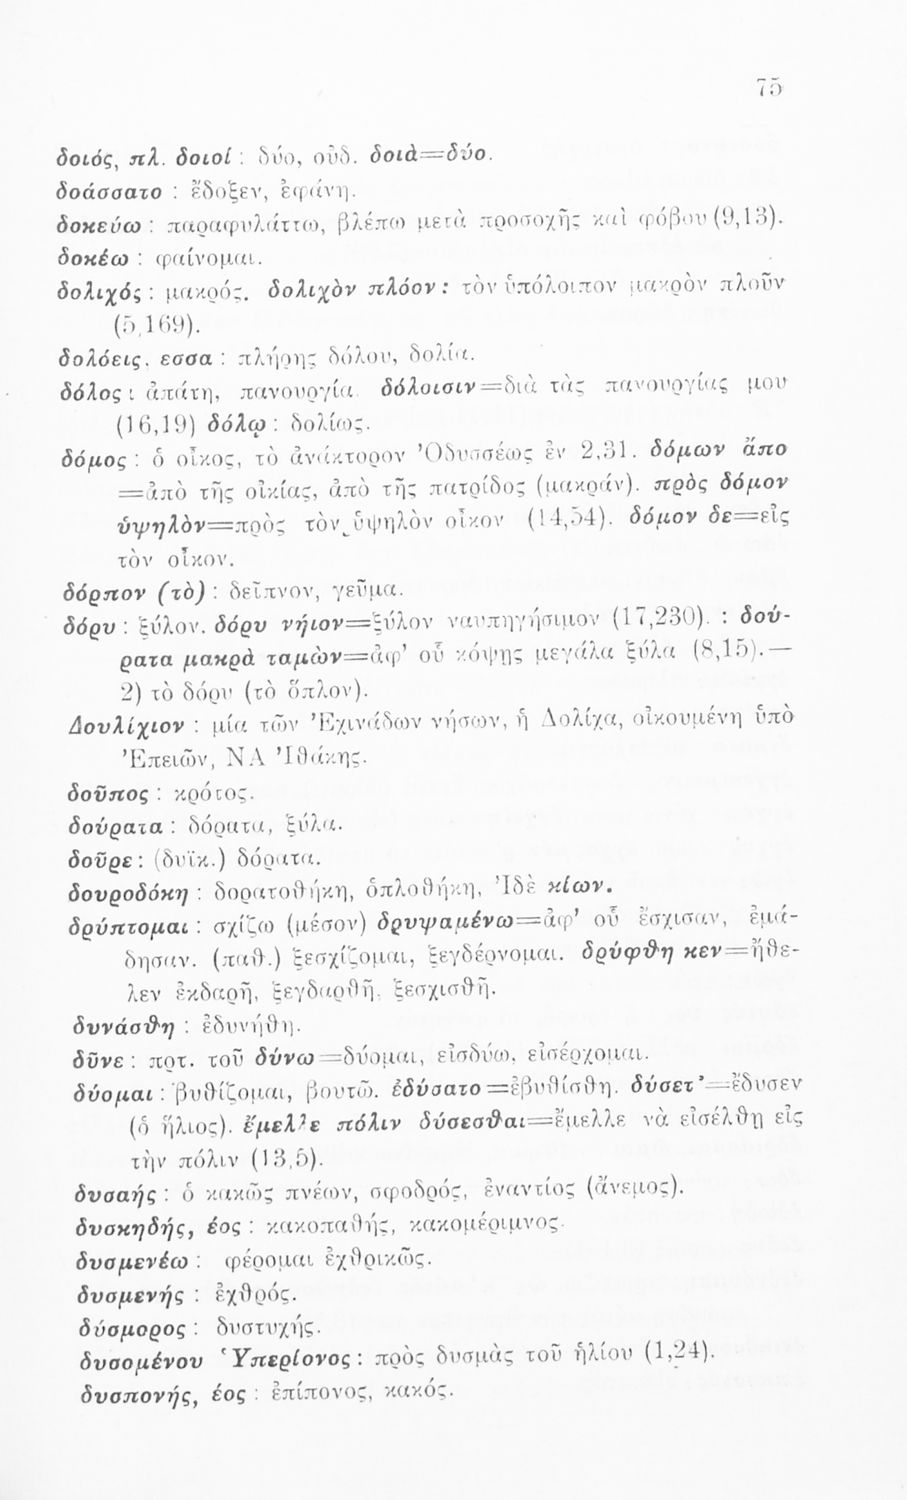 75
δοιός, πλ. δοιοί : δύο, οὐδ. δοιὰ=δύο.
δοάσσατο : ἔδοξεν, ἐφάνη.
δοκεύω : παραφυλάττω, βλέπω μετὰ προσοχῆς καὶ φόβου (9,13).
δοκέω : φαίνομαι.
δολιχός : μακρός. δολιχὸν πλόον : τὸν ὑπόλοιπον μακρὸν πλοῦν
(5,169).
δολόεις, εσσα : πλήρης δόλου, δολία.
δόλος : ἀπάτη, πανουργία δόλοισιν=διὰ τὰς πανουργίας μου
(16,19) δόλῳ : δολίως.
δόμος : ὁ οἶκος, τὸ ἀνάκτορον Ὀδυσσέως ἐν 2,31. δόμων ἄπο
=ἀπὸ τῆς οἰκίας, ἀπὸ τῆς πατρίδος (μακράν). πρὸς δόμον
ὑψηλὸν=πρὸς τὸν ὑψηλὸν οἶκον (14,54). δόμον δε=εἰς
τὸν οἶκον.
δόρπον (τὸ) : δεῖπνον, γεῦμα.
δόρυ : ξύλον. δόρυ νήιον=ξύλον ναυπηγήσιμον (17,230). : δού-
ρατα μακρὰ ταμὼν=ἀφ’ οὗ κόψῃς μεγάλα ξύλα (8,15).—
2) τὸ δόρυ (τὸ ὅπλον).
Δουλίχιον : μία τῶν Ἐχινάδων νήσων, ἡ Δολίχα, οἰκουμένη ὑπὸ
Ἐπειῶν, ΝΑ Ἰθάκης.
δοῦπος : κρότος.
δούρατα : δόρατα, ξύλα.
δοῦρε : (δυϊκ.) δόρατα.
δουροδόκη : δορατοθήκη, ὁπλοθήκη, Ἰδὲ κίων.
δρύπτομαι : σχίζω (μέσον) δρυψαμένω=ἀφ’ οὗ ἔσχισαν, ἐμά-
δησαν. (παθ.) ξεσχίζομαι, ξεγδέρνομαι. δρύφθη κεν=ἤθε-
λεν ἐκδαρῆ, ξεγδαρθῆ, ξεσχισθῆ.
δυνάσθη : ἐδυνήθη.
δῦνε : πρτ. τοῦ δύνω=δύομαι, εἰσδύω, εἰσέρχομαι.
δύομαι : βυθίζομαι, βουτῶ. ἐδύσατο=ἐβυθίσθη. δύσετ’=ἔδυσεν
(ὁ ἥλιος). ἔμελλε πόλιν δύσεσθαι=ἔμελλε νὰ εἰσέλθῃ εἰς
τὴν πόλιν (13,5).
δυσαής : ὁ κακῶς πνέων, σφοδρός, ἐναντίος (ἄνεμος).
δυσκηδής, έος : κακοπαθής, κακομέριμνος.
δυσμενέω : φέρομαι ἐχθρικῶς.
δυσμενής : ἐχθρός.
δύσμορος : δυστυχής.
δυσομένου Ὑπερίονος : πρὸς δυσμὰς τοῦ ἡλίου (1,24).
δυσπονής, έος : ἐπίπονος, κακός.